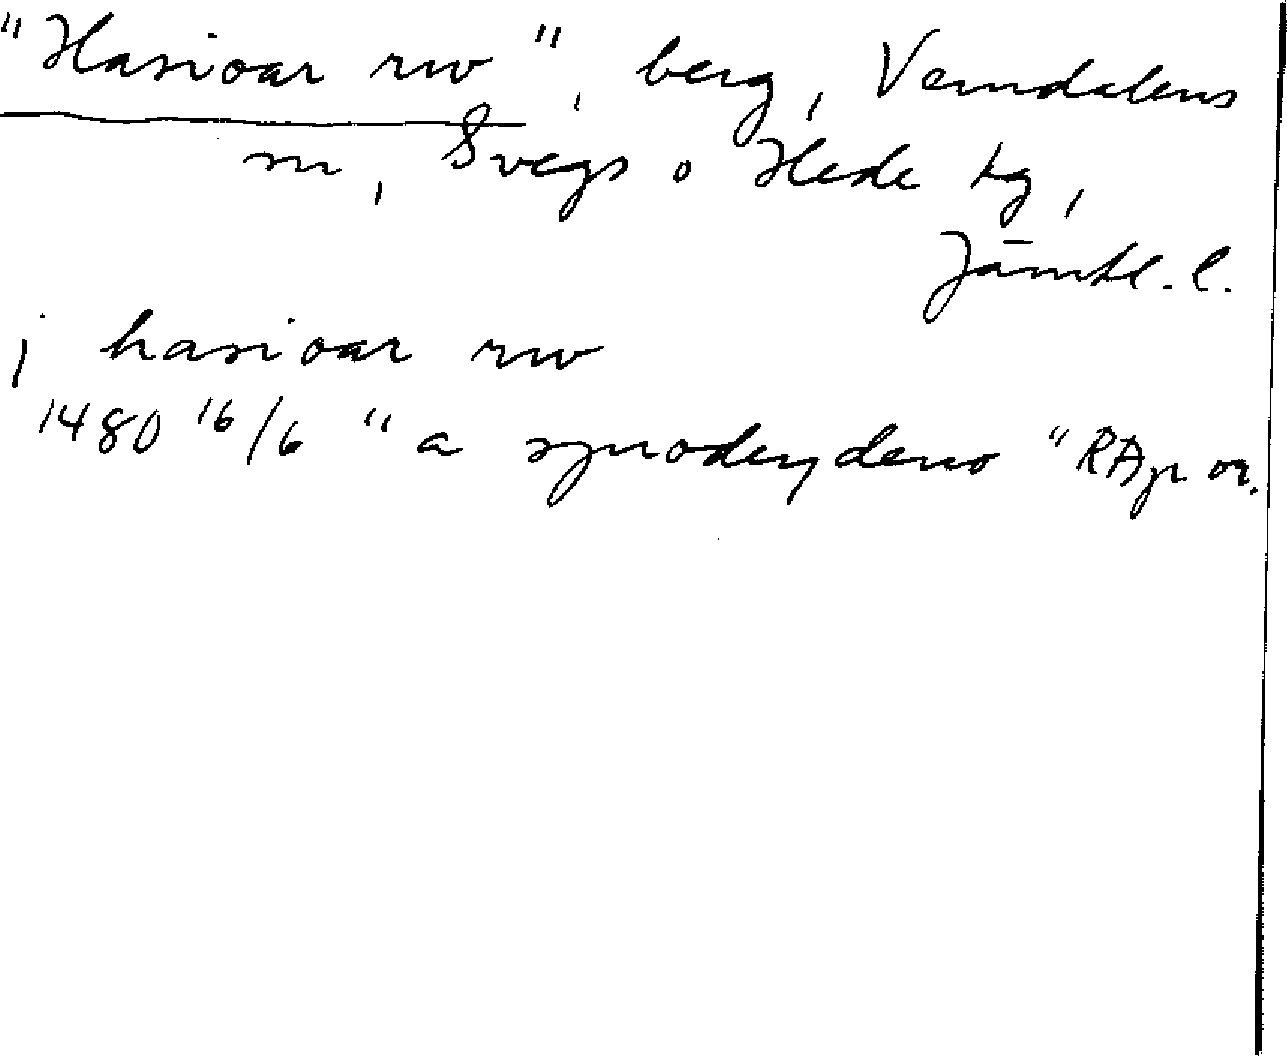 "Hasioar rw", berg, Vemdalens
sn, Svegs o Hede tg,
Jämtl. l.
j hasioar rw
1480 16/6 "a synodeydens" RAp or.